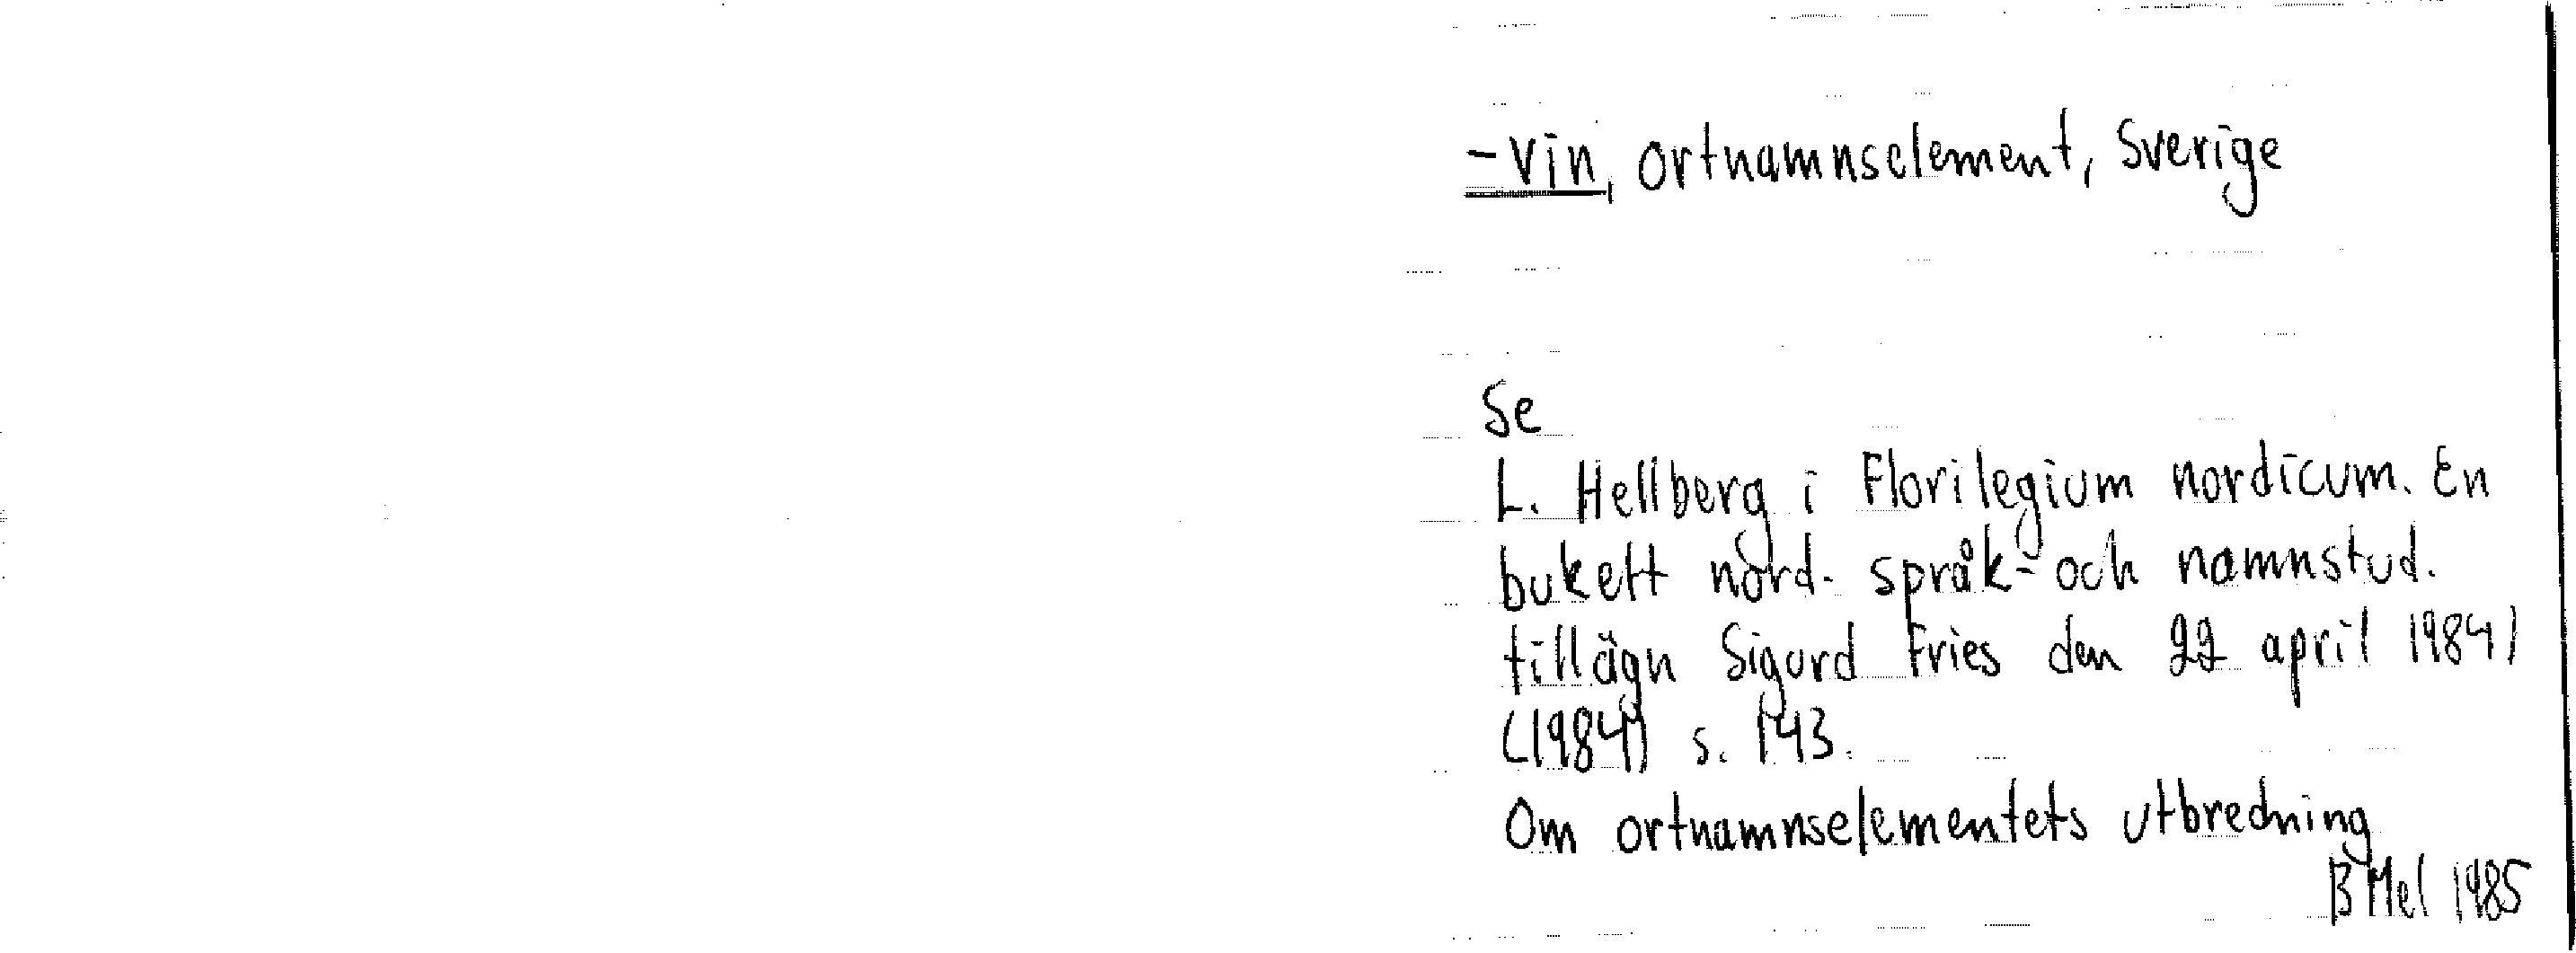 -vin, ortnamnselement, Sverige
Se
L. Hellberg i Florilegium nordicum. En
bukett nord. språk- och namnstud.
tillägn Sigurd Fries den 22 april 1984)
(1984) s. 143.
Om ortnamnselementets utbredning
B Mel 1985